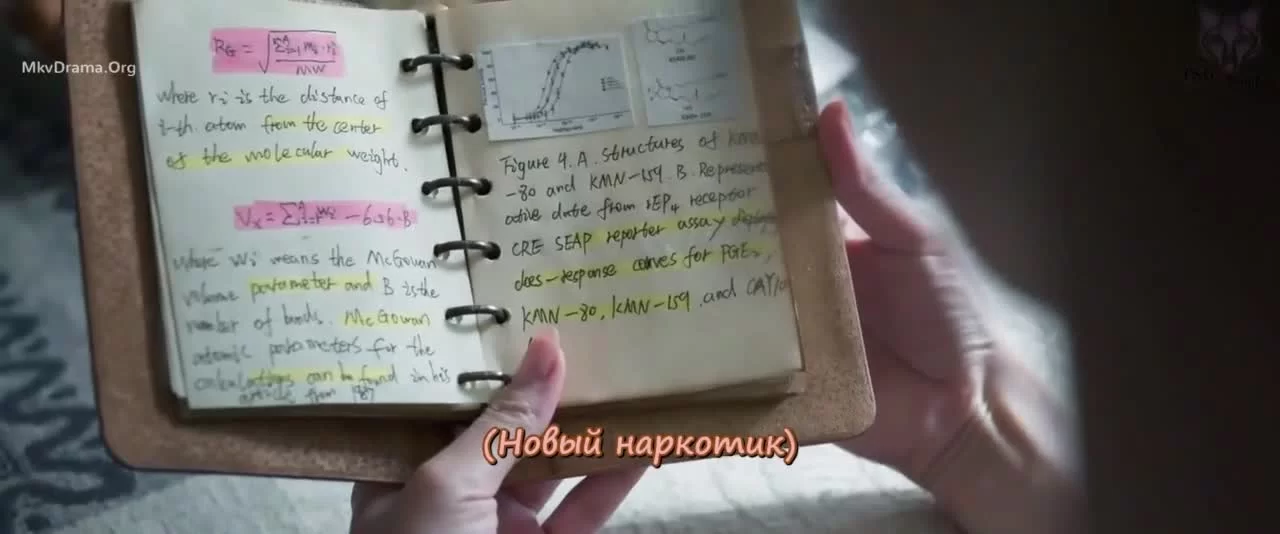 MkvDrama.Org
R_G = √(Σ^A_i=1 m_i · r_i / MW)
where ri is the distance of
i-th atom from the center
of the molecular weight.
where Wi means the McGowan
volume parameter and B is the
number of bonds. McGowan
atomic parameters for the
calculations can be found in his
article from 1987
Figure 4. A. Structures of
-80 and KMN-159. B. Represent
ative data from rEP4 receptor
CRE SEAP reporter assay
does-response curves for PGE2,
KMN-80, KMN-159, and CAY10
(Новый наркотик)